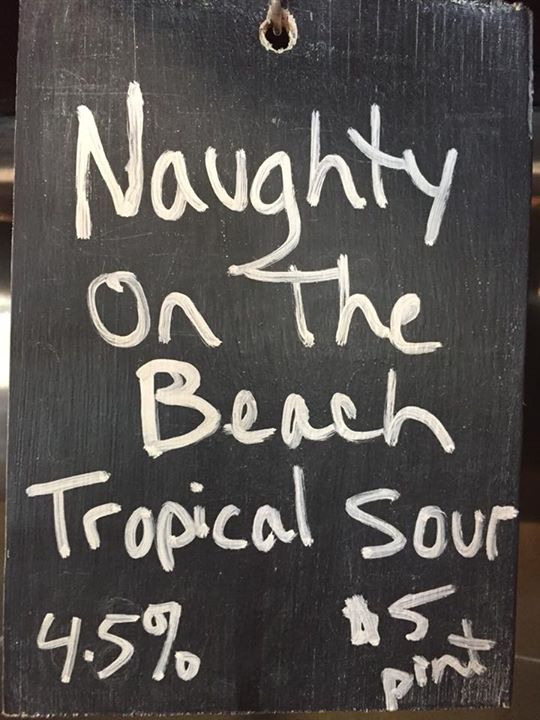 Naughty
On The
Beach
Tropical Sour
4.5% $5
pint